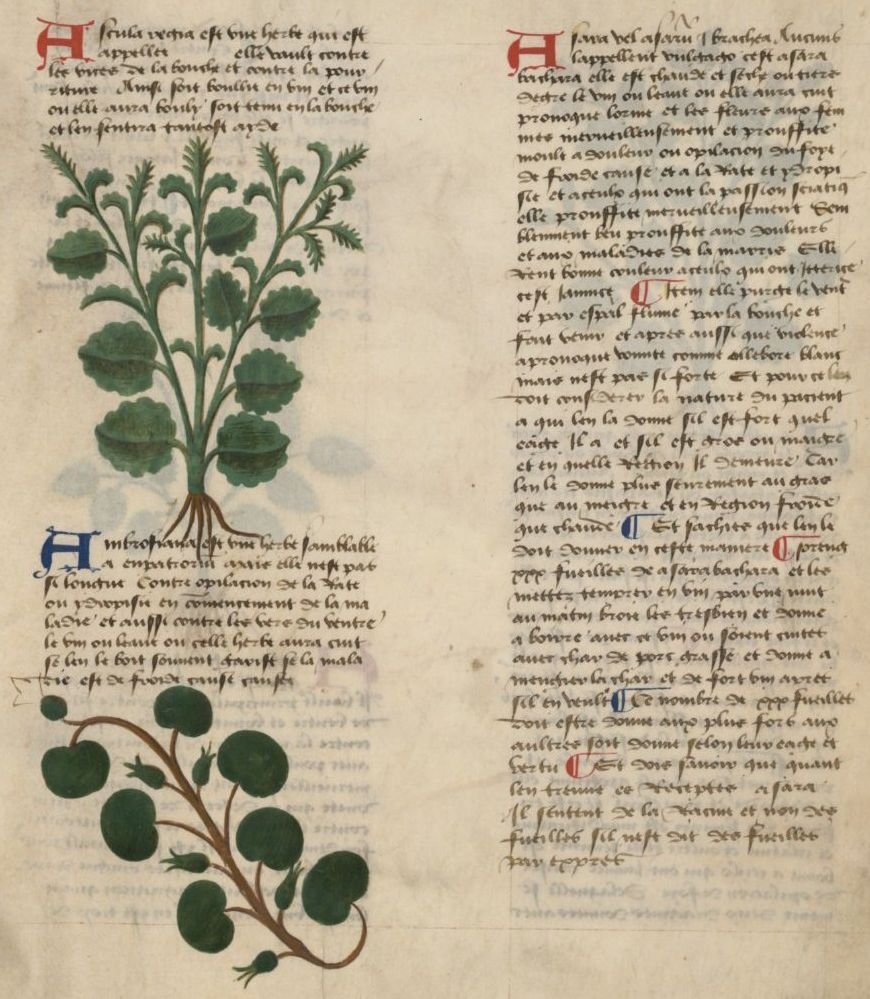 Ascula regia est vne herbe qui est
appellee elle vault contre
les vices de la bouche et contre la pour
riture Ainsi soit boullu en vin et ce vin
ou elle aura bouly soit tenu en la bouche
et len sentira tantost ayde
Ambrosiana est vne herbe samblable
a enpatorin mais elle nest pas
si longue Contre opilacion de la Rate
ou ydropisie en comencement de la ma
ladie et aussi contre les vers du ventre
le vin ou leaue ou celle herbe aura cuit
se len le boit souuent garist se la mala
die est de froide cause causee
Asara vel asaru J brachea Aucuns
lappellent vulgago cest asara
bachara elle est chaude et seche ou tiers
degre le vin ou leaue ou elle aura cuit
prouoque lorine et les fleurs aux fem
mes merueilleusement et prouffite
moult a douleur ou opilacion du foye
de froide cause et a la Rate et ydropi
sie et a ceulx qui ont la passion sciatiq
elle prouffite merueilleusement Sem
blement beu prouffite aux douleurs
et aux maladies de la marris Elle
Rent bonne couleur a ceulx qui ont Jterice
cest Jaunice Jtem elle purge le vent
et par espal flume par la bouche et
fait venir et apres aussi que violence
a prouoque vomite comme ellebore blanc
mais nest pas si forte Et pour ce len
doit considerer la nature du pacient
a qui len la donne sil est fort quel
eage Jl a et sil est gros ou maigre
et en quelle Region Jl demeure Car
len le donne plus seurement au gras
que au meigre et en Region froide
que chaude Et sachies que len le
doit donner en ceste maniere prens
xxx fueilles de asarabachara et les
mettez temprer en vin par vne nuit
au matin broie les tresbien et donne
a boire auec ce vin ou soient cuites
auec char de porc grasse et donne a
mengier la char et de fort vin apres
sil en veult Ce nombre de xxx fueilles
doit estre donne aux plus fors aux
aultres soit donne selon leur eage et
vertu Et dois sauoir que quant
len treuue es Receptes asara
Jl sentent de la Racine et non des
fueilles sil nest dit des fueilles
par expres